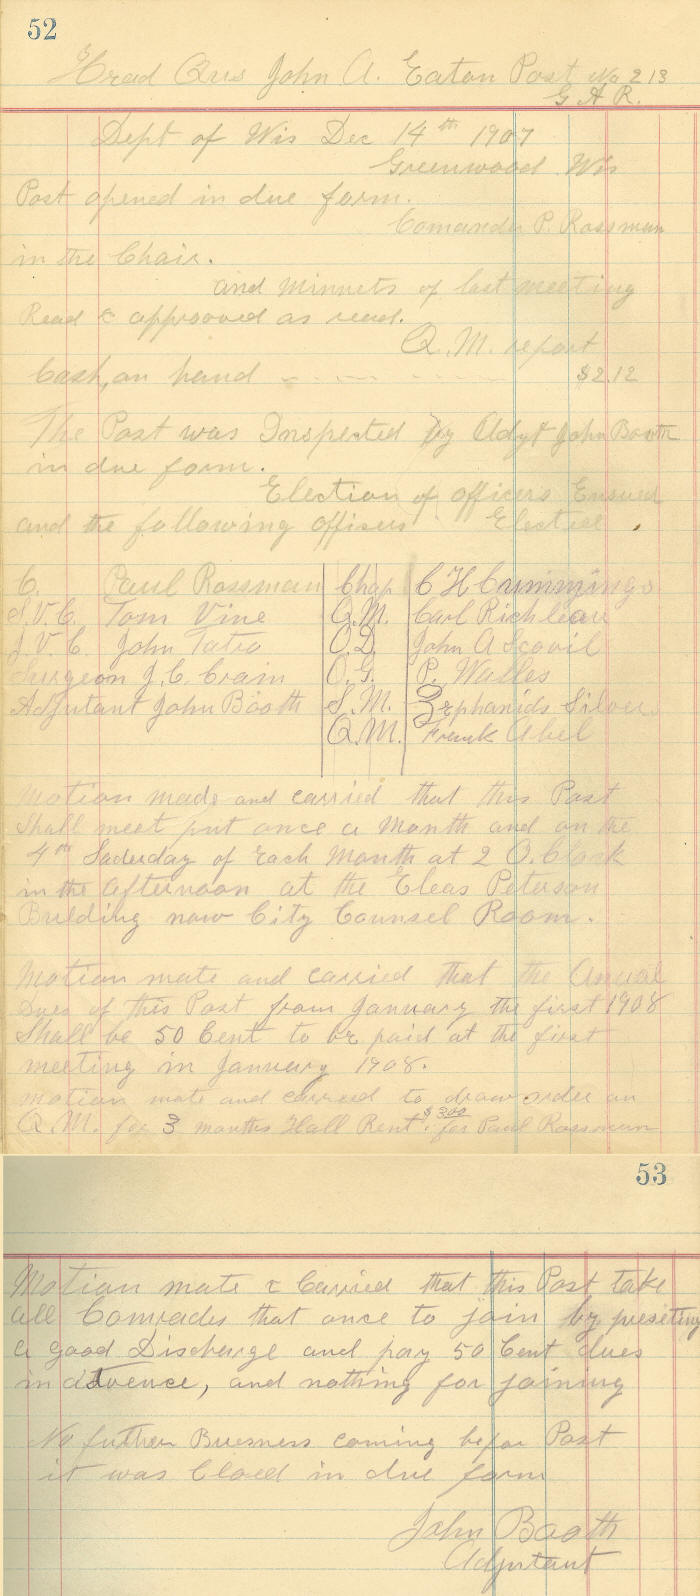 52
Head Qrs John A. Eaton Post No 213
G A R.
Dept of Wis Dec 14th 1907
Greenwood Wis
Post opened in due form.
Comander P. Rossman
in the Chair.
and Minnets of last meeting
Read & approoved as read.
Q.M. report
Cash, on hand $2.12
The Post was Inspected by Adgt John Booth
in due form.
Election of officers Ensued
and the following officers Elected.
C. Paul Rossman Chap C H Cummings
S.V.C. Tom Vine Q.M. Carl Richleau
J.V.C. John Tatro O.D. John A Scovil
Surgeon J.C. Crain O.G. P. Walles
Adjutant John Booth S.M. Zephanids Silver
Q.M. Frank Abel
Motion made and carried that this Post
Shall meet put once a Month and on the
4th Saderday of Each Month at 2 O.Clock
in the afternoon at the Eleas Peterson
Building now City Counsel Room.
Motion mate and carried that the Anual
Dues of this Post from January the first 1908
Shall be 50 Cent to be paid at the first
meeting in January 1908.
motion mate and carried to draw order on
Q.M. for 3 months Hall Rent $3.00 for Paul Rossman
53
Motion mate & Carried that this Post take
all Comrades that once to join by preseting
a good Discharge and pay 50 Cent dues
in advence, and nothing for joining
No futher Buesness coming befor Post
it was Closed in due form
John Booth
Adjutant